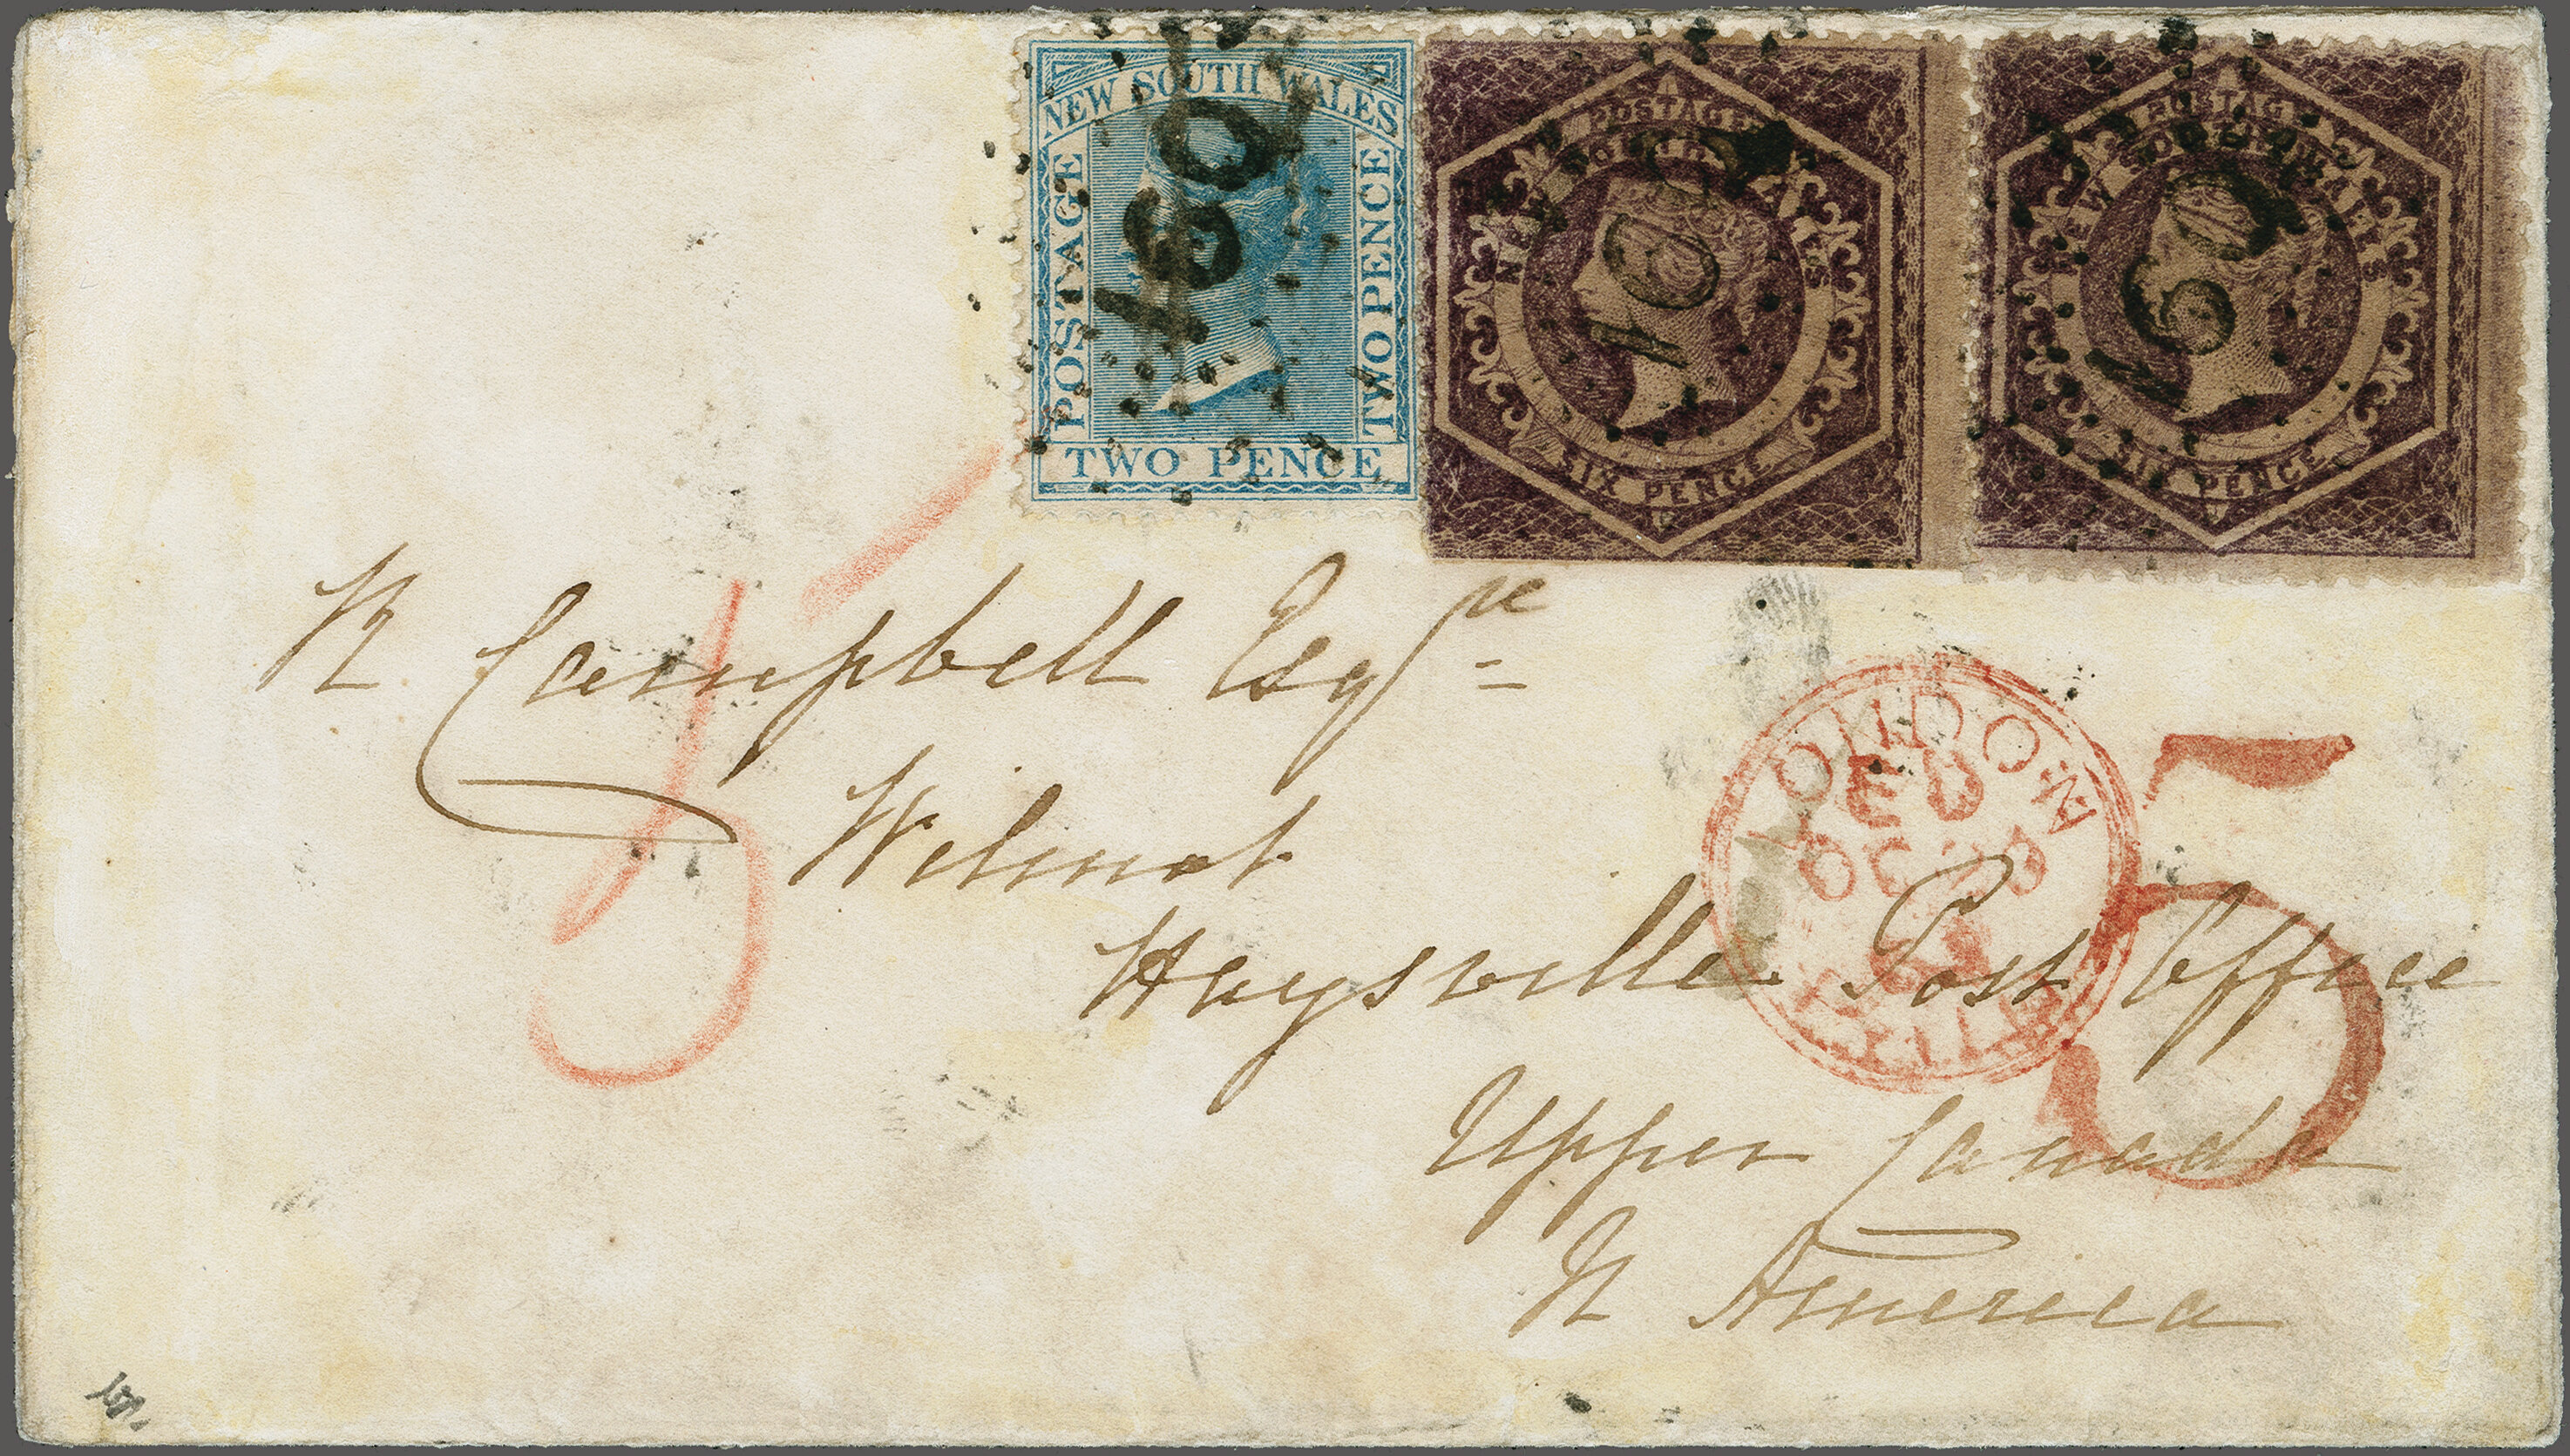 NEW SOUTH WALES
POSTAGE
TWO PENCE
TWO PENCE
160
POSTAGE
NEW SOUTH WALES
SIX PENCE
160
POSTAGE
NEW SOUTH WALES
SIX PENCE
160
Campbell Esqre
Wilmot
Haysville Post Office
Upper Canada
N America
LONDON
PAID
5